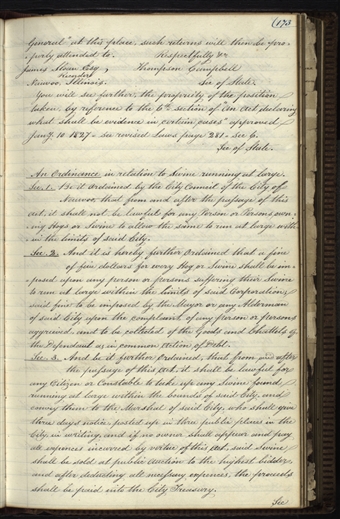 (173
General" at this place, such returns will then be pro-
perly attended to. Respectfully &c
James Sloan Esqr, Thompson Campbell
Recorder
Nauvoo Illinois. Sec of State.
You will see further, the propriety of the position
taken, by reference to the 6th section of "an act declaring
what shall be evidence in certain cases" approved
Jany. 10 1827 - see revised Laws page 281 - Sec 6.
Sec of State.
An Ordinance in relation to Swine running at large.
Sec. 1. Be it Ordained by the City Council of the City of
Nauvoo, that from and after the passage of this
act, it shall not be lawful for any Person or Persons own-
ing Hogs or Swine to allow the same to run at large with-
in the limits of said City.
Sec. 2. And it is hereby further Ordained that a fine
of five dollars for every Hog or Swine shall be im-
posed upon any person or persons suffering their Swine
to run at large within the limits of said Corporation,
said fine to be imposed by the Mayor or any Alderman
of said City upon the complaint of any person or persons
aggrieved, and to be collected of the Goods and Chattels of
the Defendant as in common Action of Debt.
Sec. 3. And be it further Ordained, that from and after
the passage of this Act, it shall be lawful for
any Citizen or Constable to take up any Swine found
running at large within the bounds of said City, and
convey them to the Marshal of said City, who shall give
three days notice, posted up in three public places in the
City, in writing, and if no owner shall appear and pay
all expences incurred by virtue of this Act, said Swine
shall be sold at public auction to the highest bidder,
and after deducting all necessary expences, the proceeds
shall be paid into the City Treasury.
Sec